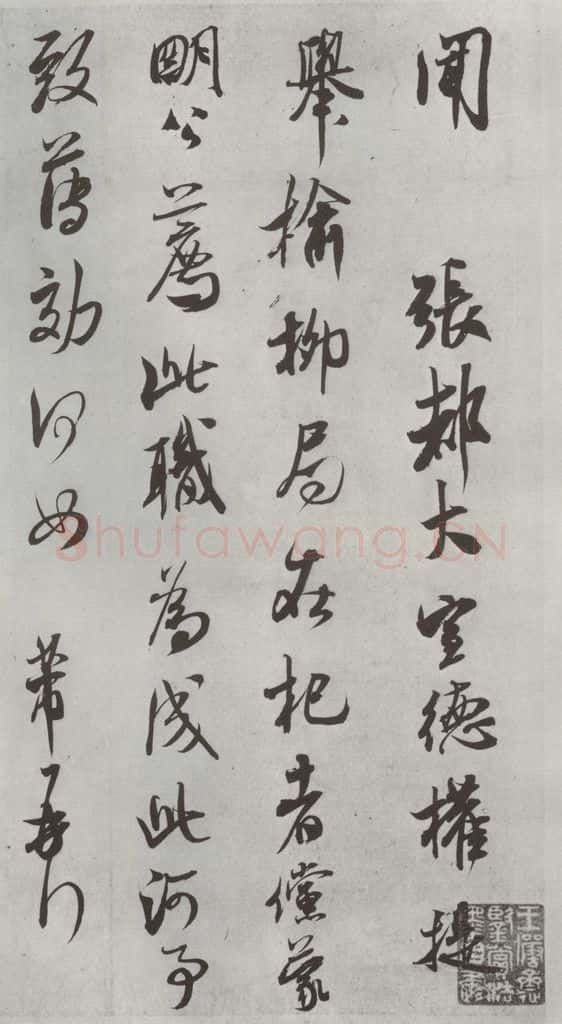 聞 張都大宣德權提
舉榆柳局在杞者儻蒙
明公薦此職為成此河事
致薄効何如 芾再行
Shufawang.CN